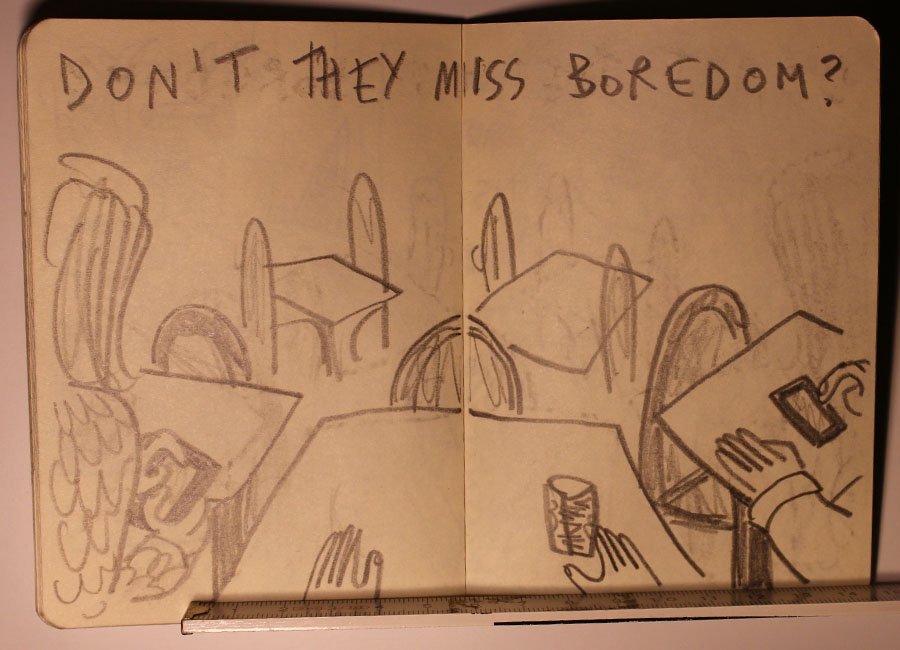 DON'T THEY MISS BOREDOM?